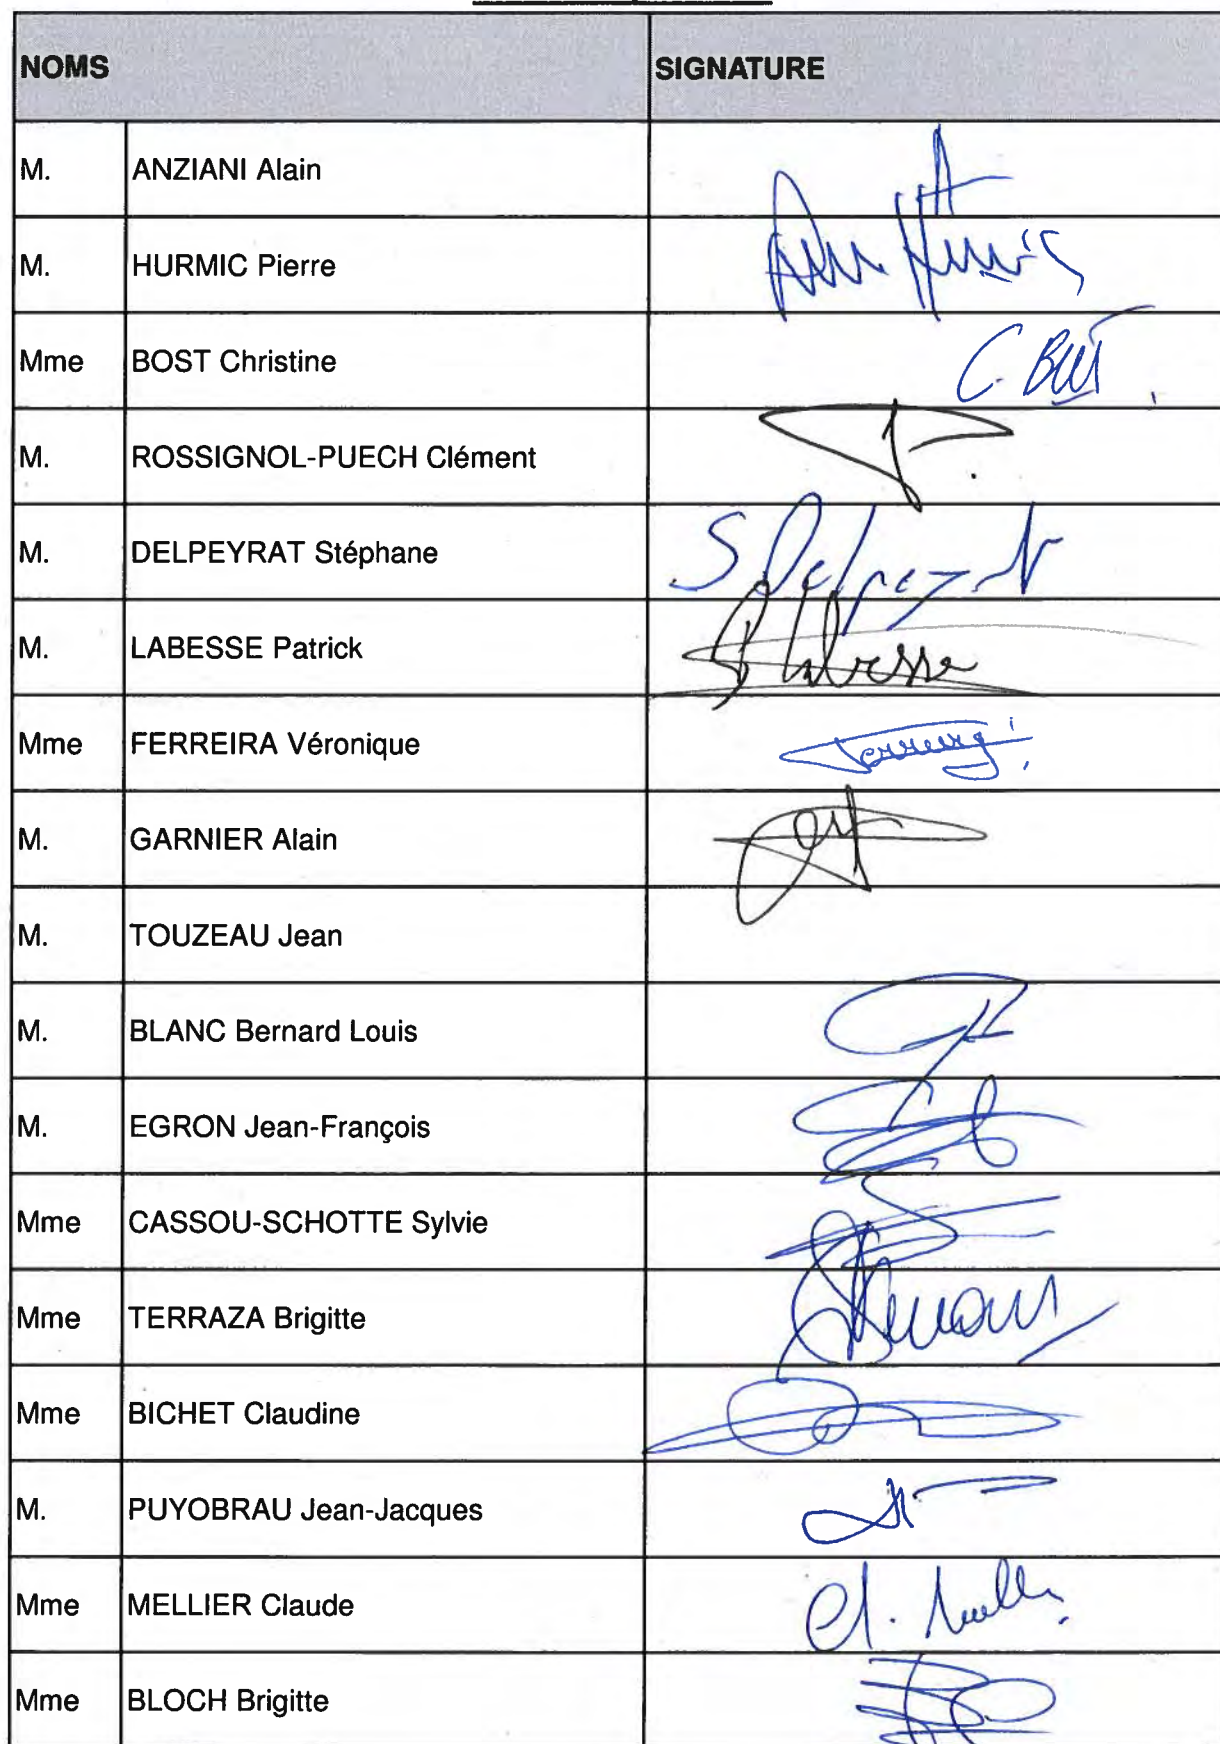 NOMS SIGNATURE
M. ANZIANI Alain
M. HURMIC Pierre
Mme BOST Christine C. Bost
M. ROSSIGNOL-PUECH Clément
M. DELPEYRAT Stéphane S Delpeyrat
M. LABESSE Patrick P Labesse
Mme FERREIRA Véronique
M. GARNIER Alain
M. TOUZEAU Jean
M. BLANC Bernard Louis
M. EGRON Jean-François
Mme CASSOU-SCHOTTE Sylvie
Mme TERRAZA Brigitte
Mme BICHET Claudine
M. PUYOBRAU Jean-Jacques
Mme MELLIER Claude
Mme BLOCH Brigitte